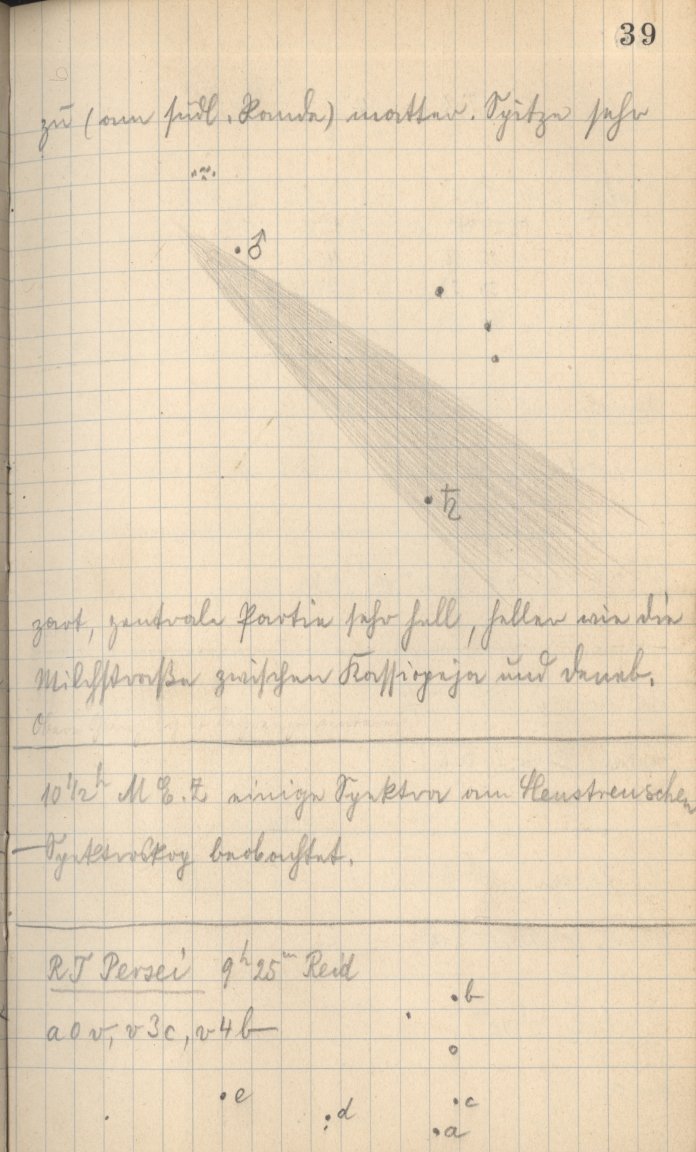 39
zu (am südl. Rande) matter. Spitze sehr
♂
♄
zart, zentrale Partie sehr hell, heller wie die
Milchstraße zwischen Kassiopeja und Deneb.
10 1/2 h M E. Z einige Spektra am
Spektroskop beobachtet.
RT Persei 9h 25m Reid
a 0 v, v 3 c, v 4 b
b
e
d
c
a